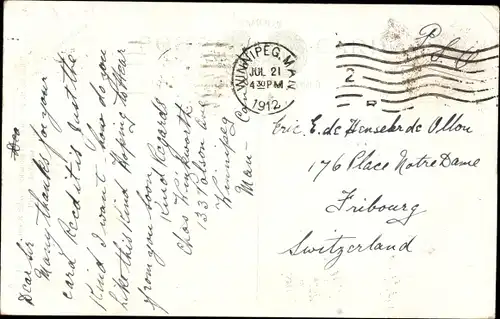 Dear Sir
Many thanks for your
card Recd it is just the
Kind I want how do you
like this Kind Hoping to Hear
from you soon
Kind Regards
Chas Hinkworth
133 Polson Ave
Winnipeg
Man- Can
WINNIPEG, MAN
JUL 21
4 30 PM
1912
2
Eric. E. de
Ollon
176 Place Notre Dame
Fribourg
Switzerland